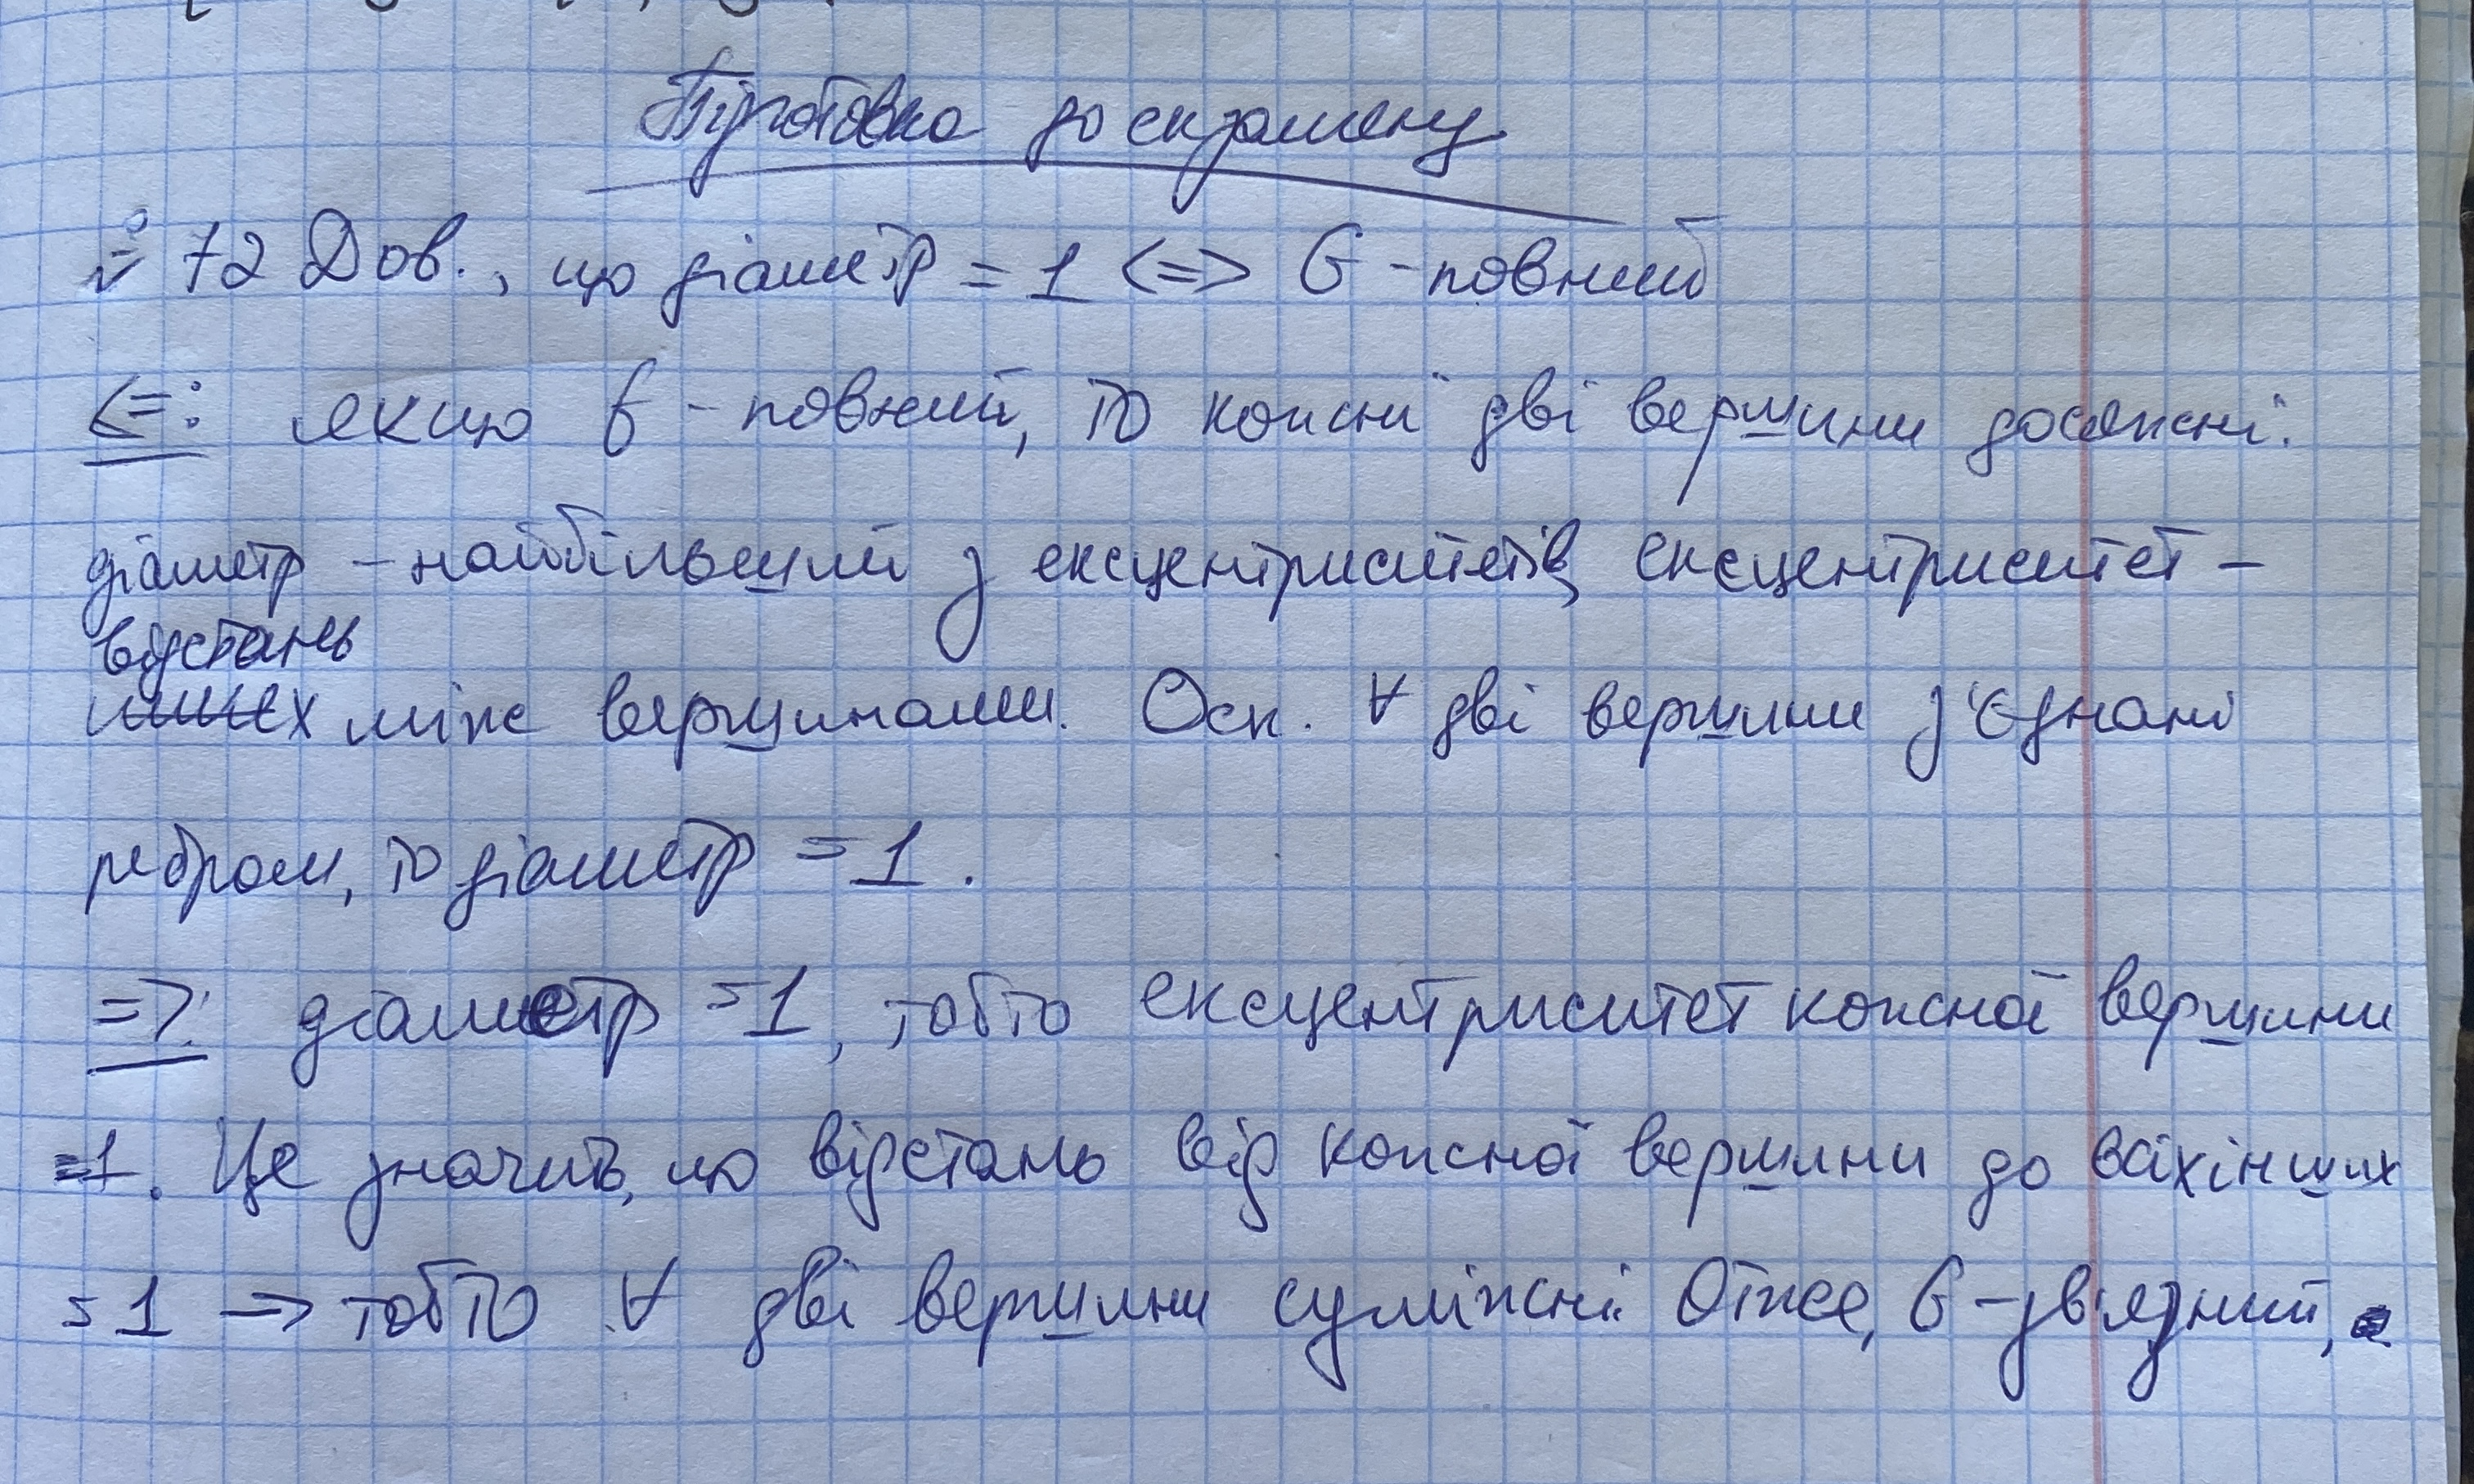 Підготовка до екзамену
72 Дов., що діаметр = 1 <=> G - повний
<=: якщо G - повний, то кожні дві вершини досяжні.
діаметр - найбільший з ексцентриситетів, ексцентриситет -
відстань
між вершинами. Оск. ∀ дві вершини з'єднані
ребром, то діаметр = 1.
=>: діаметр = 1, тобто ексцентриситет кожної вершини
=1. Це значить, що відстань від кожної вершини до всіх інших
= 1 → тобто ∀ дві вершини суміжні. Отже, G - зв'язний,